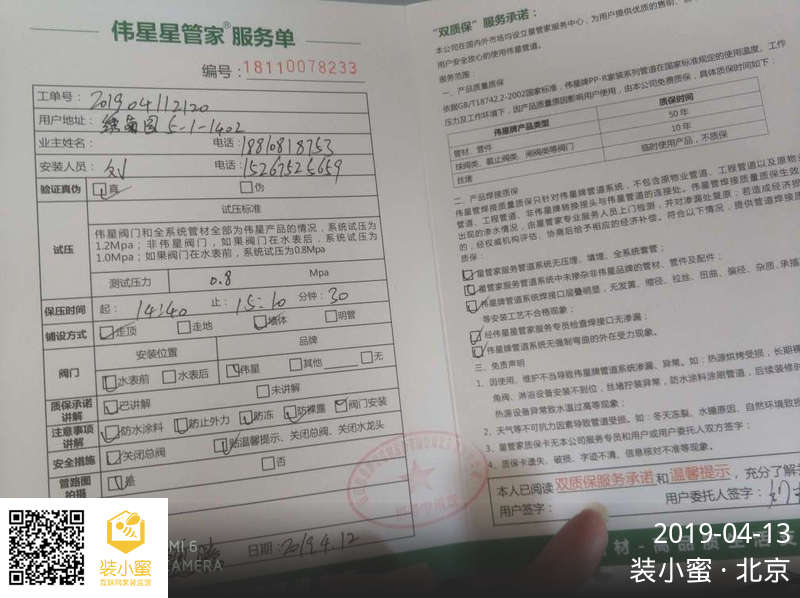 伟星星管家®服务单
编号：18110078233
工单号：2019041121​20
用户地址： 5-1-1402
业主姓名： 电话：18810818753
安装人员： 电话：15267525659
验证真伪 真 伪
试压标准
试压
伟星阀门和全系统管材全部为伟星产品的情况，系统试压为
1.2Mpa；非伟星阀门，如果阀门在水表后，系统试压为
1.0Mpa；如果阀门在水表前，系统试压为0.8Mpa
测试压力 0.8 Mpa
保压时间 起：14:40 止：15:10 分钟：30
铺设方式 走顶 走地 墙体 明管
安装位置 品牌
阀门 水表前 水表后 伟星 其他 无
质保承诺讲解 已讲解 未讲解
注意事项讲解 防水涂料 防止外力 防冻 防裸露 阀门安装
安全措施 关闭总阀 贴温馨提示、关闭总阀、关闭水龙头
管路图拍摄 是 否
日期：2019.4.12
"双质保"服务承诺：
本公司在国内外市场均设立星管家服务中心，为用户提供优质的售前、
用户安全放心的使用伟星管道。
服务范围：
一、产品质量质保
依据GB/T18742.2-2002国家标准，伟星牌PP-R家装系列管道在国家标准规定的使用温度、工作
压力及工作环境下，因产品质量原因影响用户使用，由本公司免费质保，具体质保时间如下：
伟星牌产品类型 质保时间
管材、管件 50年
球阀类、截止阀类、闸阀类等阀门 10年
丝堵 临时使用产品，不质保
二、产品焊接质保
伟星管焊接质量质保只针对伟星牌管道系统，不包含原物业管道、工程管道以及原物业
管道、工程管道、非伟星牌转换接头与伟星管道的连接处。伟星管焊接质量质保生效
出现的渗水情况，由星管家专业服务人员上门检测，并对渗漏处复原；若造成经济损
的，经权威机构评估、协商后给予相应的经济补偿。符合以下情况，提供管道焊接质
质保：
星管家服务管道系统无压埋、填埋、全系统套管；
星管家服务管道系统中未掺杂非伟星品牌的管材、管件及配件；
伟星牌管道系统焊接口层叠明显，无发黄、缩径、拉丝、扭曲、偏径、杂质、承插
等安装工艺不合格现象；
经伟星星管家服务专员检查焊接口无渗漏；
伟星牌管道系统无强制弯曲的外在受力现象。
三、免责声明
1、因使用、维护不当导致伟星牌管道系统渗漏、异常。如：热源烘烤受损，长期裸
角阀、淋浴设备安装不到位，丝堵拧装异常，防水涂料涂刷管道，后续装修
热源设备异常致水温过高等现象；
2、天气等不可抗力因素导致管道受损。如：冬天冻裂、水锤原因、自然环境致
3、星管家质保卡无本公司服务专员和用户或用户委托人双方签字；
4、质保卡遗失、破损、字迹不清，信息核对不准等现象。
本人已阅读 双质保服务承诺 和 温馨提示，充分了解
用户签字： 用户委托人签字：
MI 6
CAMERA
装小蜜
互联网家装监理
2019-04-13
装小蜜·北京